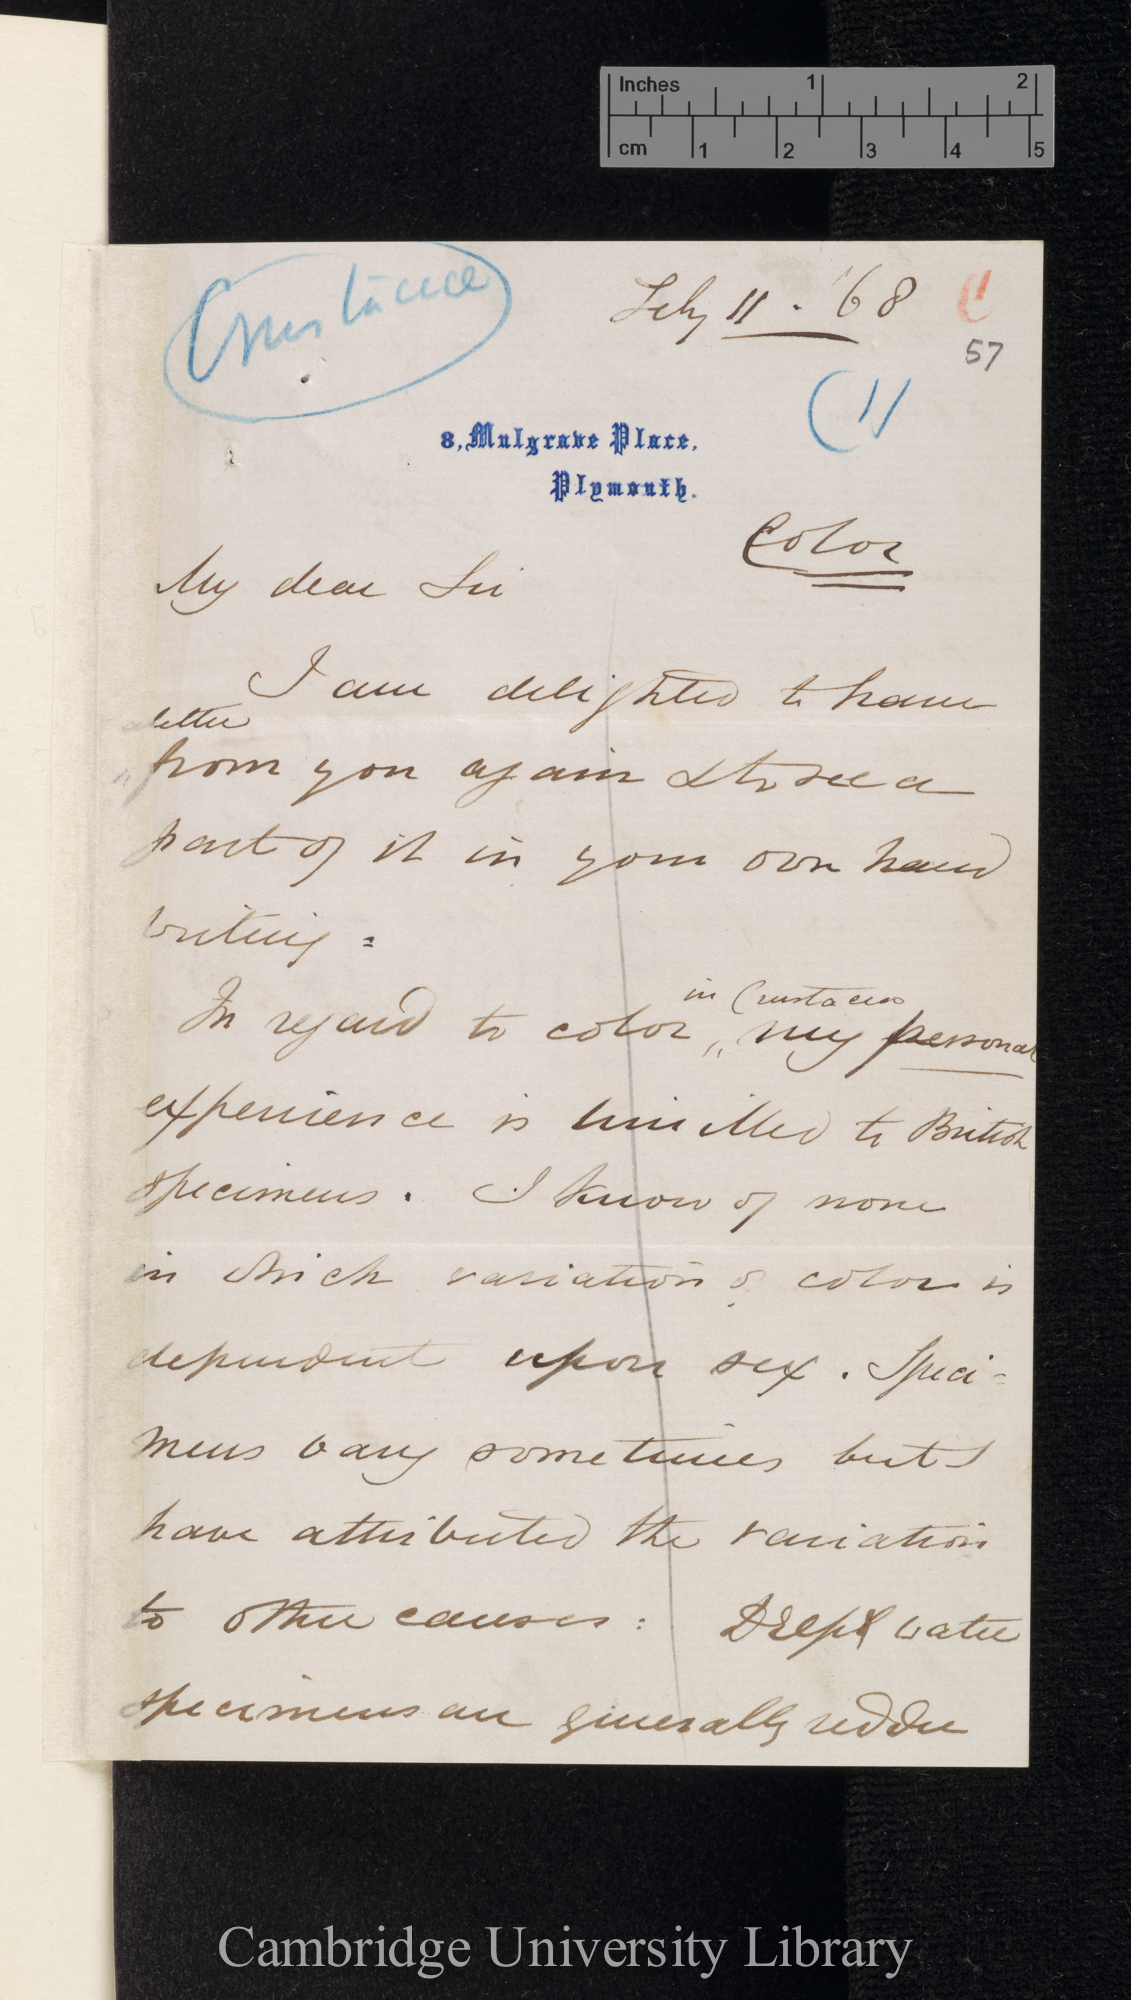 Inches 1 2
cm 1 2 3 4 5
Crustacea
Feby 11. '68
57
(11
8, Mulgrave Place,
Plymouth.
Color
My dear Sir
I am delighted to have
a letter
from you again & to see a
part of it in your own hand
writing =
in Crustacea
In regard to color my personal
experience is limitted to British
specimens. I know of none
in which variation of color is
dependent upon sex. Speci-
mens vary sometimes but I
have attributed the variation
to other causes: Deep water
specimens are generally redder
Cambridge University Library